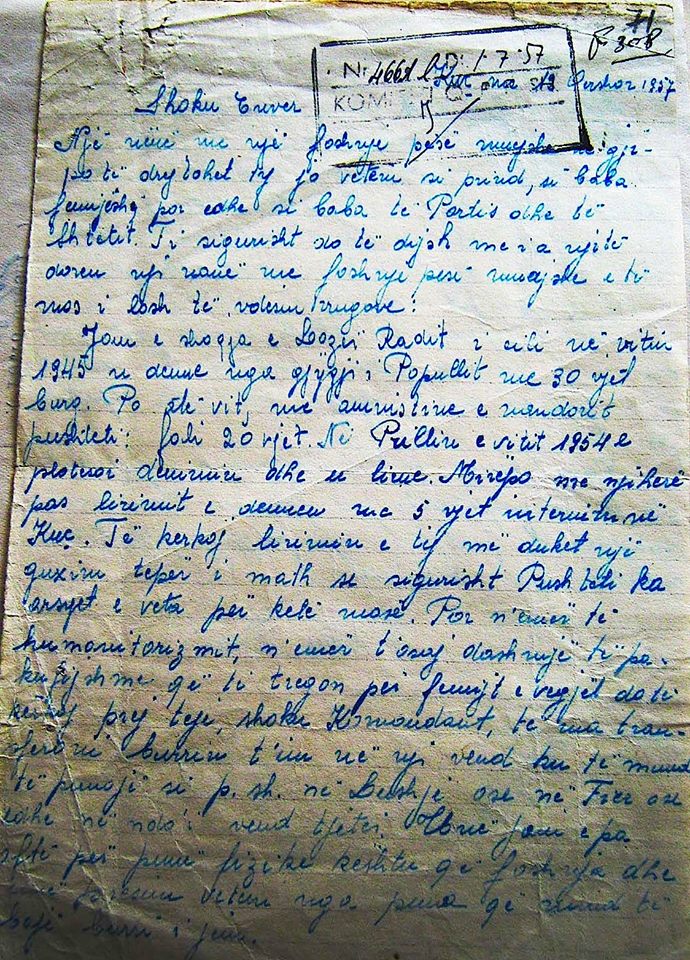 71
N: 4661 D. 1.7.57
Kuç me 19 Qershor 1957
KOM
Shoku Enver
Një nënë me një foshnje pesë muajshe në gji-
po të drejtohet ty jo vetem si prind, si baba
femijësh, por edhe si baba të Partis dhe të
Shtetit. Ti sigurisht do të dijsh me i a njitë
doren nji nanë me foshnje pesë muajshe e të
mos i lësh të vdesin rrugave!
Jam e shoqja e Lazër Radit i cili në vitin
1945 u denue nga gjyqji i Popullit me 30 vjet
burg. Po atë vit, me amnistine e
pushteti fali 20 vjet. Në Prillin e vitit 1954 e
plotsoi denimin dhe u lirue. Mirëpo me njiherë
pas lirimit e denuen me 5 vjet internim në
Kuç. Të kerkoj lirimin e tij më duket një
guxim tepër i math se sigurisht Pushteti ka
arsyet e veta për ketë masë. Por n'emër të
humanitarizmit, n'emër t'asaj dashnije të pa-
kufijshme që ti tregon për femijt e vegjël do të
kerkoj prej teje, shoku Komandant, të ma tran-
sferoni burrin t'im në nji vend ku të mund
të punojë si p.sh. në Levshje ose në Fier ose
edhe në nda'i vend tjetër. Unë jam e pa
aftë për punë fizike keshtu që foshnja dhe
unë vetem nga puna që mund të
bëjë burri i jem.